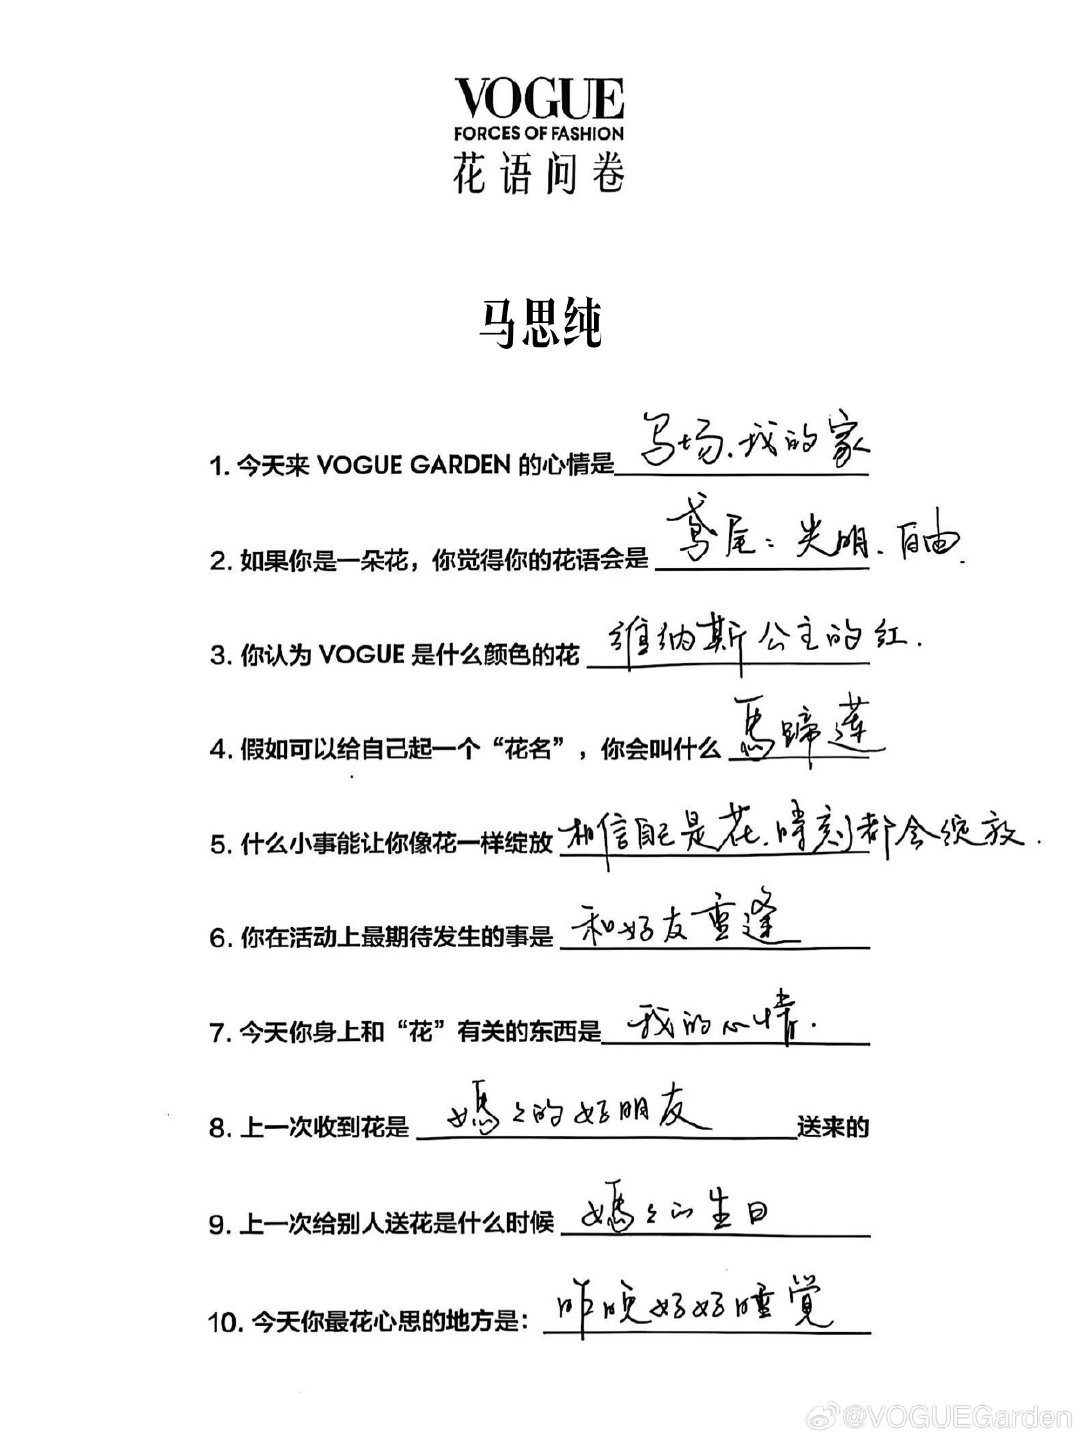 VOGUE
FORCES OF FASHION
花语问卷
马思纯
1. 今天来 VOGUE GARDEN 的心情是 马场、我的家
2. 如果你是一朵花，你觉得你的花语会是 鸢尾：光明、自由.
3. 你认为 VOGUE 是什么颜色的花 维纳斯公主的红.
4. 假如可以给自己起一个“花名”，你会叫什么 馬蹄蓮
5. 什么小事能让你像花一样绽放 相信自己是花、時刻都会绽放.
6. 你在活动上最期待发生的事是 和好友重逢
7. 今天你身上和“花”有关的东西是 我的心情.
8. 上一次收到花是 媽々的好朋友 送来的
9. 上一次给别人送花是什么时候 媽々的生日
10. 今天你最花心思的地方是: 昨晚好好睡覺
@VOGUEGarden